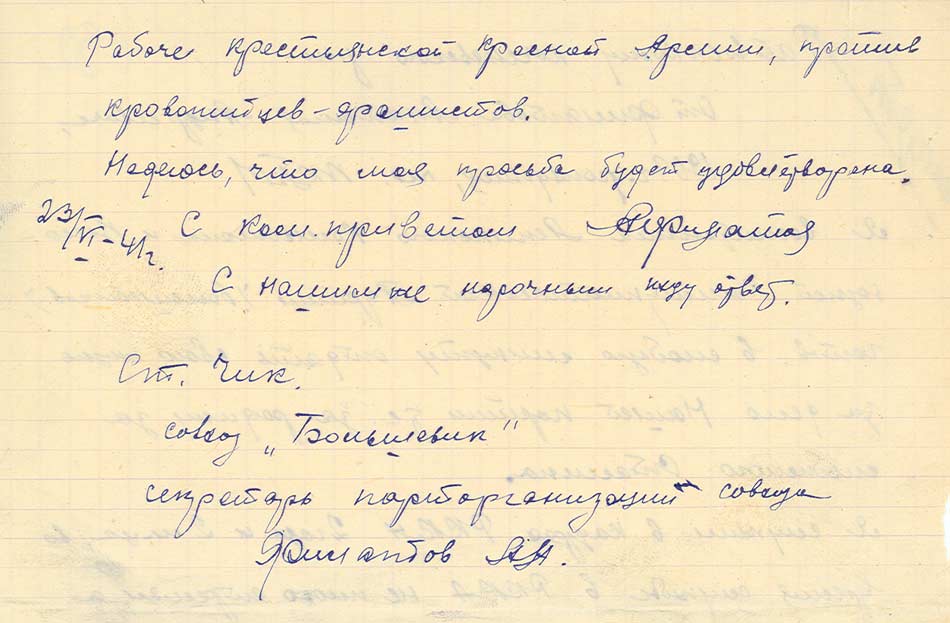 Рабоче крестьянской красной Армии, против
кровопийцев-фашистов.
Надеюсь, что моя просьба будет удовлетворена.
23/VI-41г. С ком. приветом
С нашим же нарочным жду ответ.
Ст. Чик.
совхоз „Большевик"
секретарь парторганизации совхоза
Филатов АН.